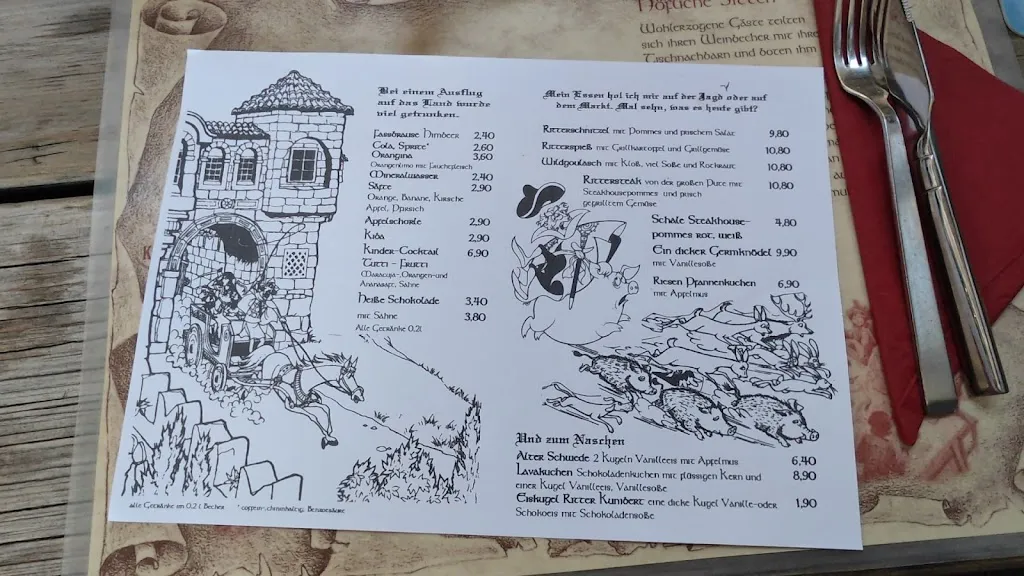 Höfliche Sitten
Wohlerzogene Gäste teilten
sich ihren Weinbecher mit ihre
Tischnachbarn und boten ihm
Bei einem Ausflug
auf das Land wurde
viel getrunken.
Fassbrause Himbeer 2,40
Cola, Sprite* 2,60
Orangina 3,60
Orangenlimo mit Fruchtfleisch
Mineralwasser 2,40
Säfte 2,90
Orange, Banane, Kirsche
Apfel, Pfirsich
Apfelschorle 2,90
KiBa 2,90
Kinder-Cocktail 6,90
Tutti-Frutti
Maracuja-,Orangen-und
Ananassaft, Sahne
Heiße Schokolade 3,40
mit Sahne 3,80
Alle Getränke 0,2l
alle Getränke im 0,2 l Becher
Mein Essen hol ich mir auf der Jagd oder auf
dem Markt. Mal sehn, was es heute gibt?
Ritterschnitzel mit Pommes und frischem Salat 9,80
Ritterspieß mit Grillkartoffel und Grillgemüse 10,80
Wildgoulasch mit Kloß, viel Soße und Rotkraut 10,80
Rittersteak von der großen Pute mit 10,80
Steakhousepommes und frisch
gegrilltem Gemüse
Schale Steakhouse- 4,80
pommes rot, weiß
Ein dicker Germknödel 9,90
mit Vanillesoße
Riesen Pfannenkuchen 6,90
mit Apfelmus
Und zum Naschen
Alter Schwede 2 Kugeln Vanilleeis mit Apfelmus 6,40
Lavakuchen Schokoladenkuchen mit flüssigen Kern und 8,90
einer Kugel Vanilleeis, Vanillesoße
Eiskugel Ritter Kunibert eine dicke Kugel Vanille-oder 1,90
Schokoeis mit Schokoladensoße